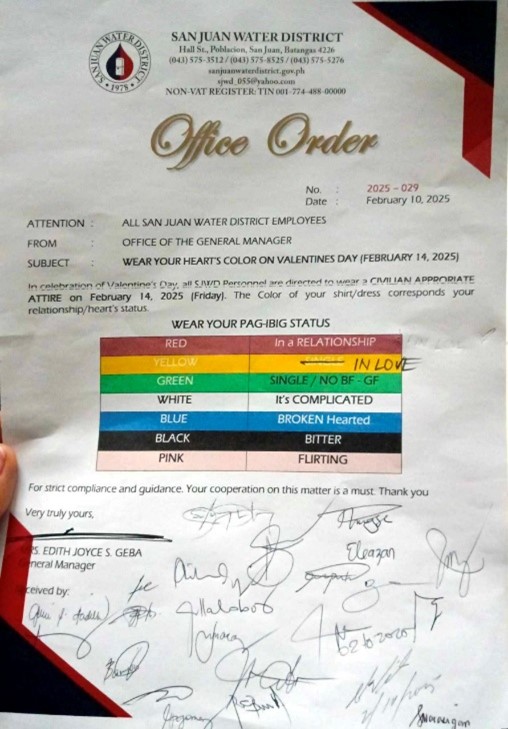 SAN JUAN WATER DISTRICT
1978
SAN JUAN WATER DISTRICT
Hall St., Poblacion, San Juan, Batangas 4226
(043) 575-3512 / (043) 575-8525 / (043) 575-5276
sanjuanwaterdistrict.gov.ph
sjwd_055@yahoo.com
NON-VAT REGISTER: TIN 001-774-488-00000
Office Order
No. : 2025 - 029
Date : February 10, 2025
ATTENTION : ALL SAN JUAN WATER DISTRICT EMPLOYEES
FROM : OFFICE OF THE GENERAL MANAGER
SUBJECT : WEAR YOUR HEART'S COLOR ON VALENTINES DAY (FEBRUARY 14, 2025)
In celebration of Valentine's Day, all SJWD Personnel are directed to wear a CIVILIAN APPRORIATE
ATTIRE on February 14, 2025 (Friday). The Color of your shirt/dress corresponds your
relationship/heart's status.
WEAR YOUR PAG-IBIG STATUS
RED In a RELATIONSHIP
YELLOW SINGLE IN LOVE
GREEN SINGLE / NO BF - GF
WHITE It's COMPLICATED
BLUE BROKEN Hearted
BLACK BITTER
PINK FLIRTING
For strict compliance and guidance. Your cooperation on this matter is a must. Thank you
Very truly yours,
S. EDITH JOYCE S. GEBA
General Manager
ceived by:
Eleazan